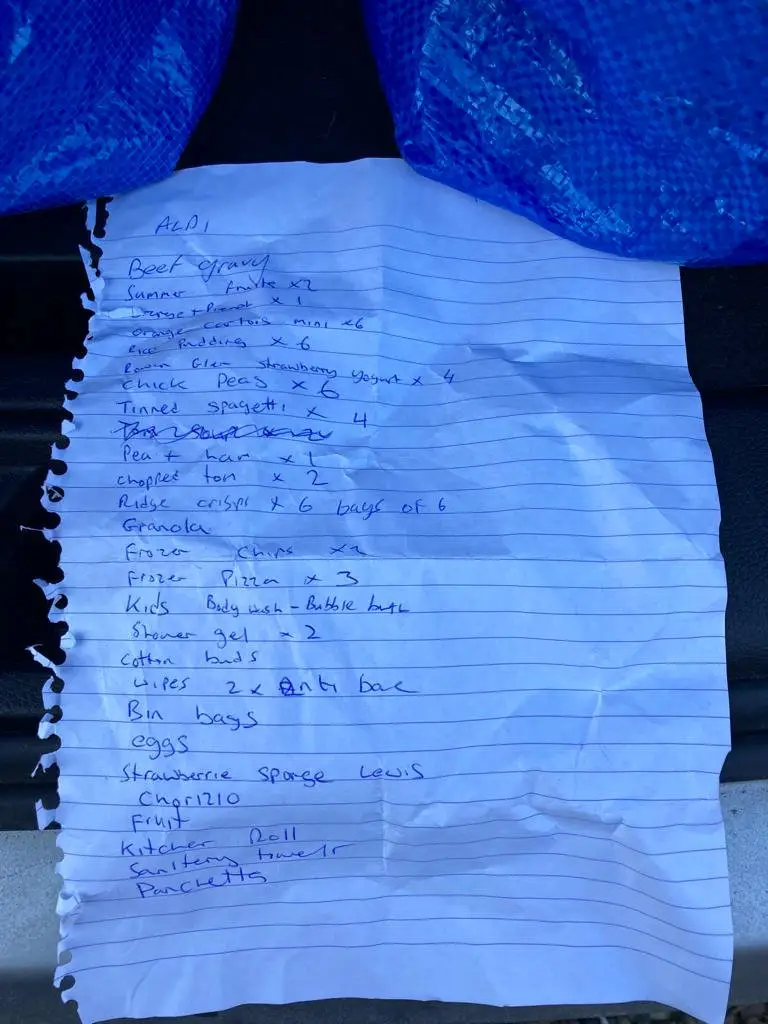 ALDI
Beef gravy
Summer fruits x2
x 1
orange cartons mini x6
Rice Pudding x 6
Rowan Glen strawberry yogurt x 4
chick Peas x 6
Tinned spagetti x 4
Pea + ham x 1
chopped tom x 2
Ridge crisps x 6 bags of 6
Granola
Frozen chips x2
Frozen Pizza x 3
Kids Body wash - Bubble bath
Shower gel x 2
cotton buds
wipes 2 x Anti bac
Bin bags
eggs
Strawberrie sponge Lewis
Chorizo
Fruit
Kitchen Roll
Sanitery towels
Panchetta